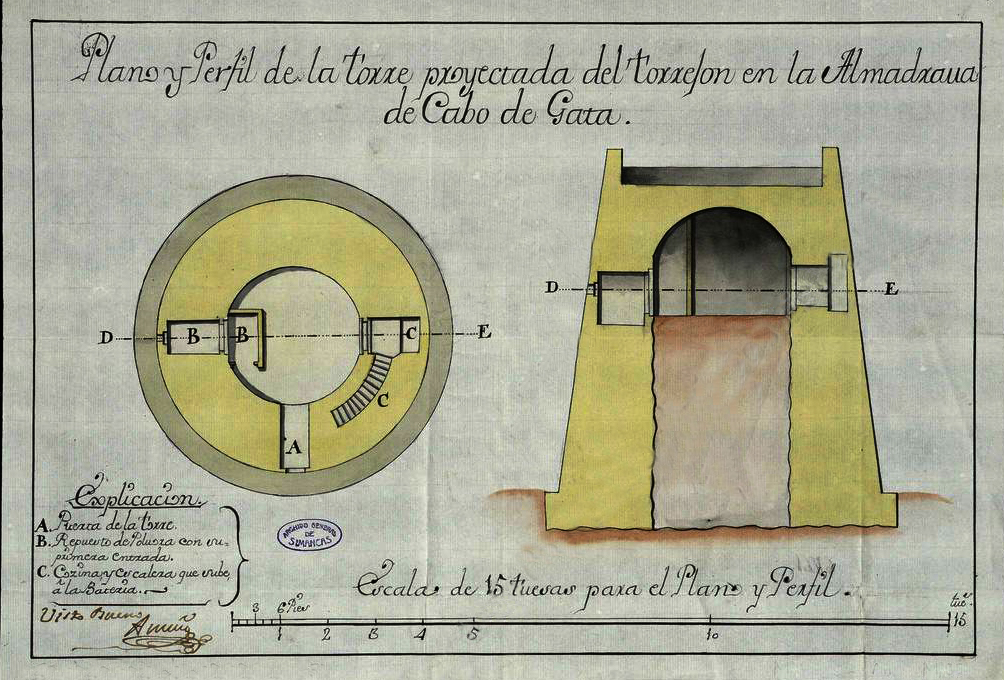 Plano y Perfil de la torre proyectada del torreson en la Almadraua
de Cabo de Gata.
D
B
B
C
E
C
A
D
E
Explicacion.
A. Puerta de la torre.
B. Repuesto de Polvora con su
primera entrada.
C. Cozina, y escalera que sube
à la Bateria.
Visto Bueno
ARCHIVO GENERAL
DE
SIMANCAS
Escala de 15 tuesas para el Plano y Perfil.
3 6 Pies
tues.
1 2 3 4 5 10 15